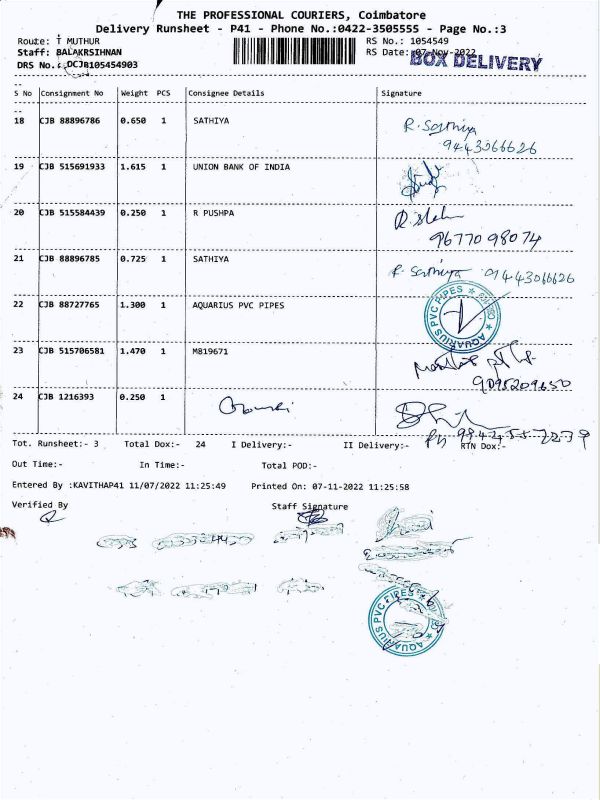 THE PROFESSIONAL COURIERS, Coimbatore
Delivery Runsheet - P41 - Phone No.:0422-3505555 - Page No.:3
Route: T MUTHUR RS No.: 1054549
Staff: BALAKRSIHNAN RS Date: 07-Nov-2022
DRS No.: DCJB105454903 BOX DELIVERY
S No Consignment No Weight PCS Consignee Details Signature
18 CJB 88896786 0.650 1 SATHIYA R. Sathiya
9443066626
19 CJB 515691933 1.615 1 UNION BANK OF INDIA
20 CJB 515584439 0.250 1 R PUSHPA
9677098074
21 CJB 88896785 0.725 1 SATHIYA R. Sathiya 9443066626
22 CJB 88727765 1.300 1 AQUARIUS PVC PIPES AQUARIUS PVC PIPES
23 CJB 515706581 1.470 1 M819671
9095209650
24 CJB 1216393 0.250 1
Tot. Runsheet:- 3 Total Dox:- 24 I Delivery:- II Delivery:- RTN Dox:-
Out Time:- In Time:- Total POD:-
Entered By :KAVITHAP41 11/07/2022 11:25:49 Printed On: 07-11-2022 11:25:58
Verified By Staff Signature
AQUARIUS PVC PIPES